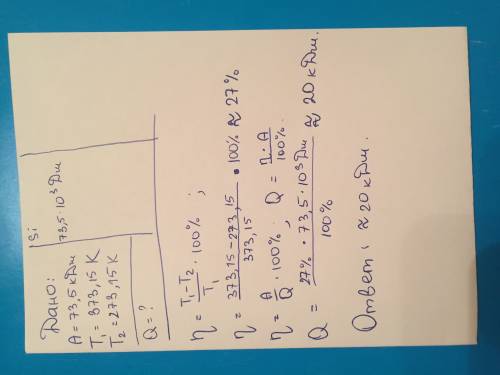 Дано:
A = 73,5 кДж
T₁ = 373,15 K
T₂ = 273,15 K
Q = ?
Si
73,5·10³ Дж
η = (T₁ - T₂)/T₁ · 100% ;
η = (373,15 - 273,15)/373,15 · 100% ≈ 27%
η = A/Q · 100% ; Q = η·A/100%.
Q = 27% · 73,5·10³ Дж/100% ≈ 20 кДж.
Ответ: ≈ 20 кДж.